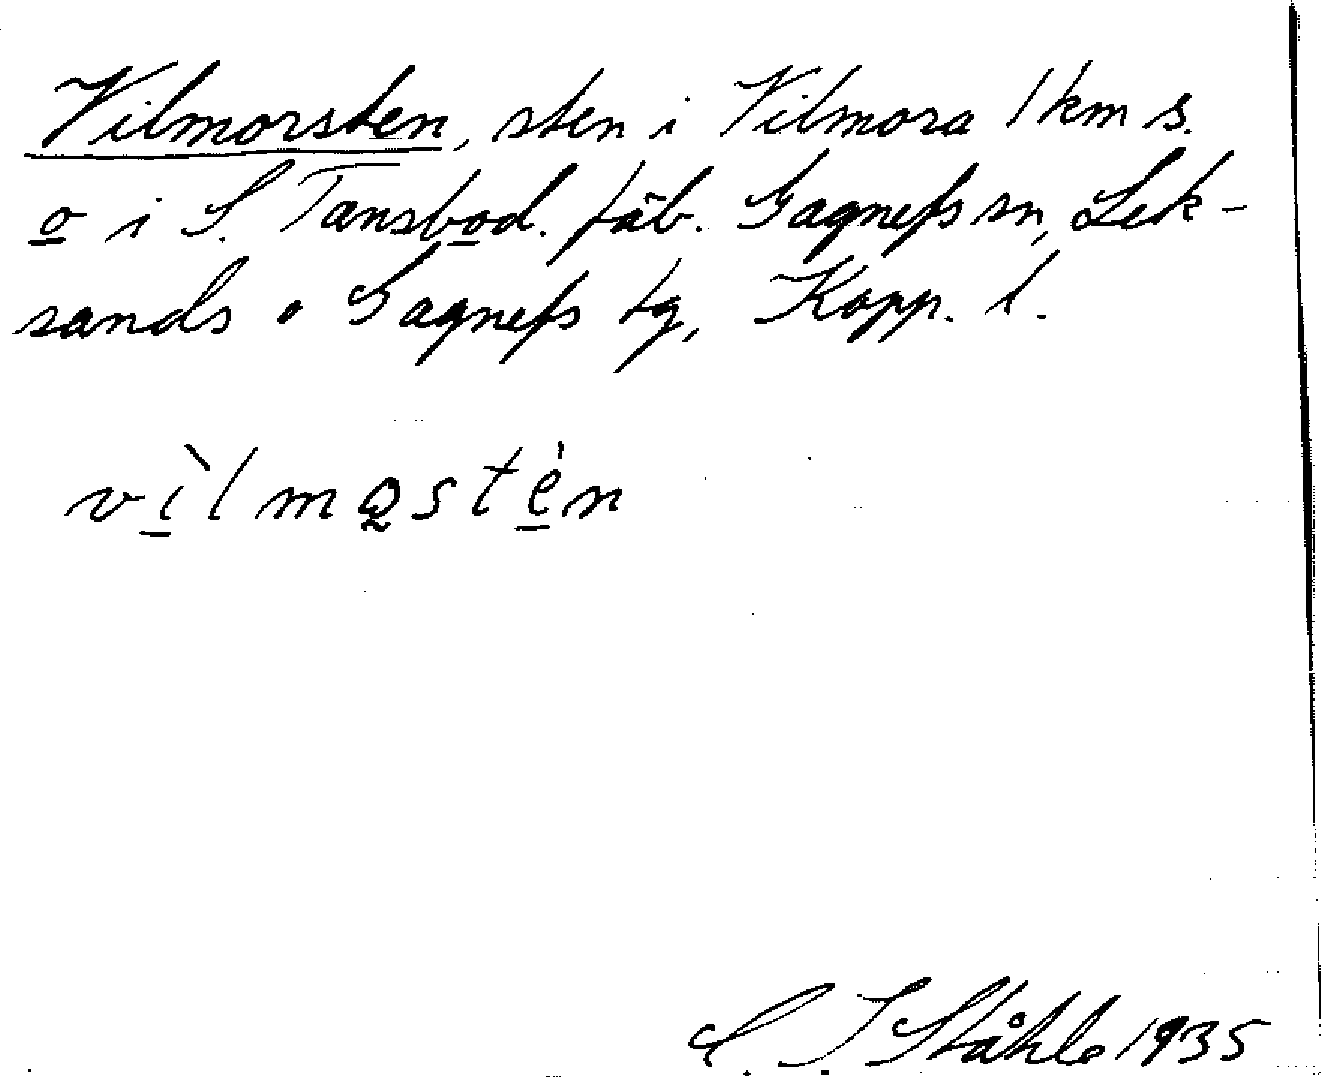 Vilmorsten, sten i Vilmora 1 km s.
o i S. Tansbod. fäb. Gagnefs sn, Lek-
sands o Gagnefs tg, Kopp. l.
vìlmo̰stén
C. I. Ståhle 1935